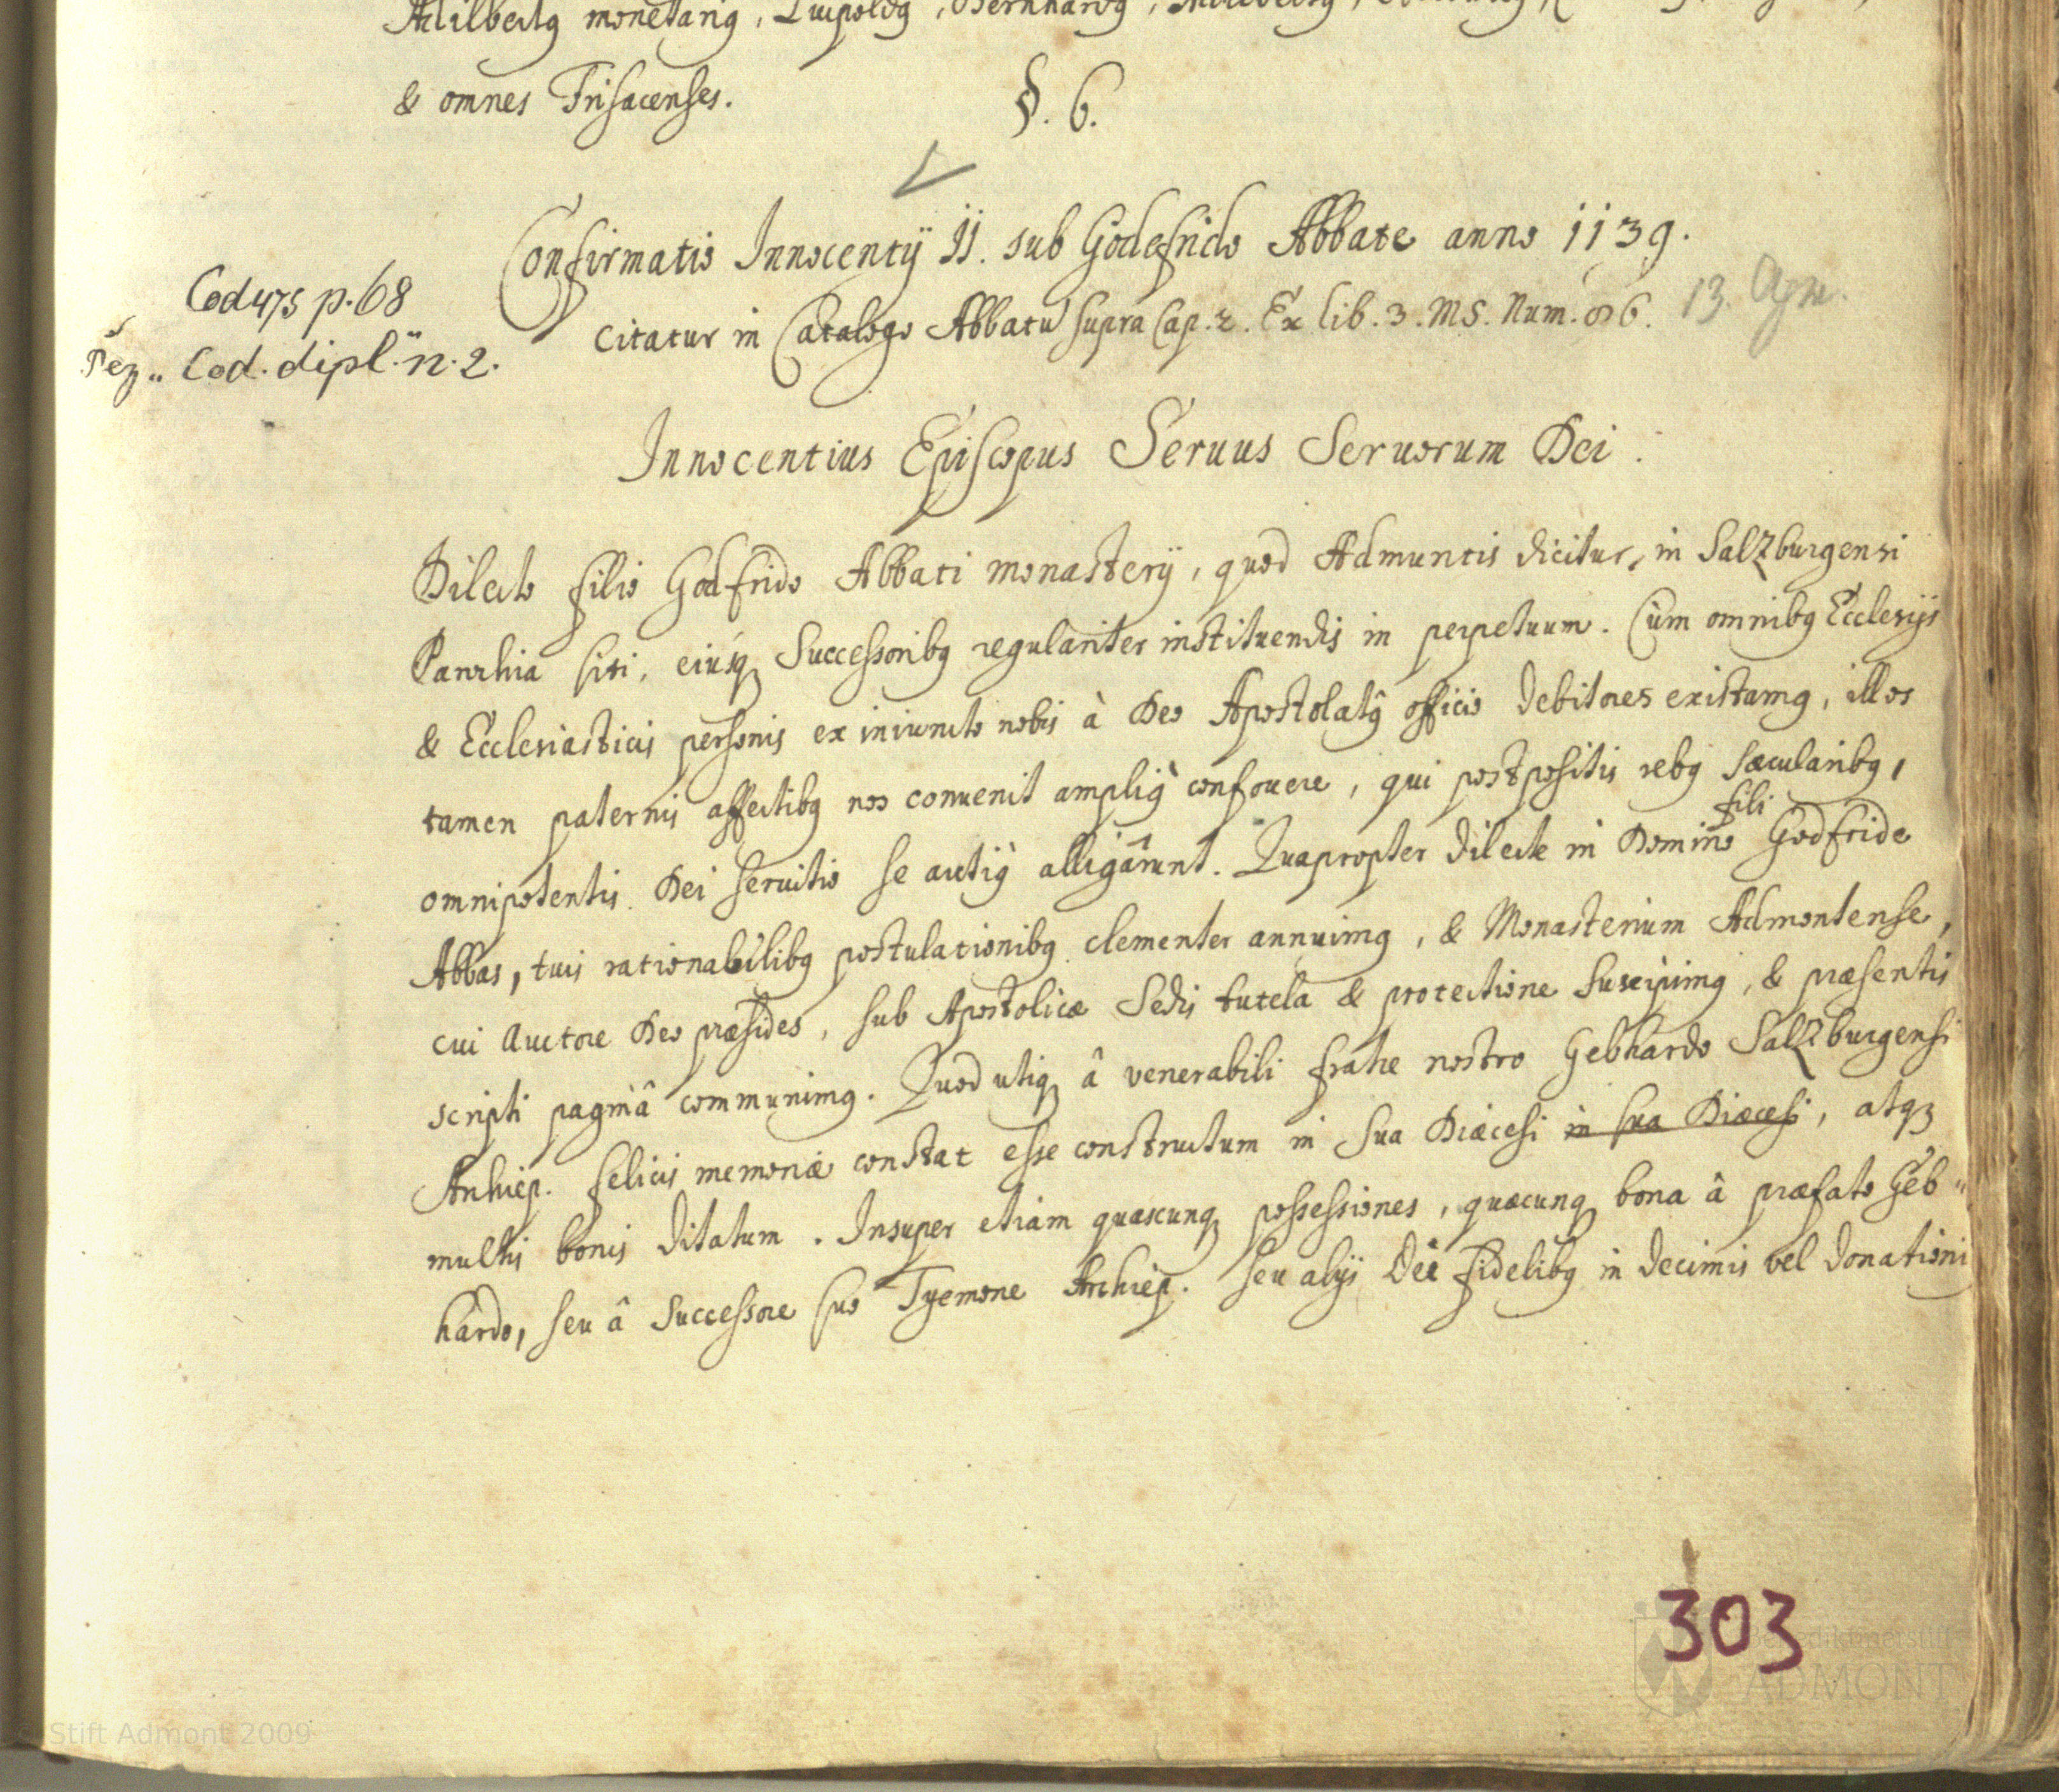 Adilbertq monetariq, Luipoldq, Bernhardq,
& omnes Frisacenses.
§. 6.
Confirmatio Innocentÿ II. sub Godefrido Abbate anno 1139.
13. Apr.
Cod 475 p. 68
citatur in Catalogo Abbatũ supra Cap. 2. Ex lib. 3. MS. Num.
Pez „ Cod. dipl. n. 2.
Innocentius Episcopus Seruus Seruorum Dei.
Dilecto filio Godfrido Abbati monasterÿ, quod Admuntis dicitur, in Salzburgensi
Parochia siti, eiusq; Successoribq regulariter instituendis in perpetuum. Cùm omnibq Ecclesÿs
& Ecclesiasticis personis ex iniuncto nobis à Deo Apostolatq̂ officio debitores existamq, illos
tamen paternis affectibq nos conuenit ampliq̀ confouere, qui postpositis rebq sæcularibq,
omnipotentis Dei seruitio se arctiq̀ alligârunt. Quapropter dilecte in Domino fili Godfride
Abbas, tuis rationabilibq postulationibq clementer annuimq, & Monasterium Admontense,
cui Auctore Deo præsides, sub Apostolicæ Sedis tutela & protectione suscipimq, & præsentis
scripti paginâ communimq. Quod utiq; â venerabili fratre nostro Gebhardo Salzburgensi
Archiep. felicis memoriæ constat esse constructum in sua Diæcesi in sua Diæcesi, atq;
multis bonis ditatum. Insuper etiam quascunq; possessiones, quæcunq; bona â præfato Geb„
hardo, seu â Successore suo Tyemone Archiep. seu alÿs Dei fidelibq in decimis vel donationi
303
Benediktinerstift
ADMONT
Stift Admont 2009